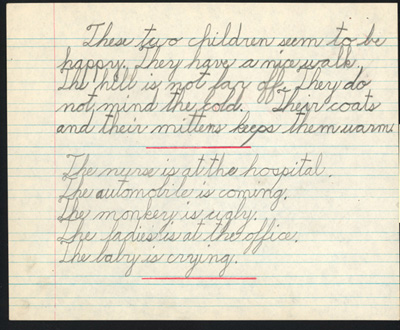 These two children seem to be
happy. They have a nice walk.
The hill is not far off. They do
not mind the cold. Their coats
and their mittens keeps them warm
The nurse is at the hospital.
The automobile is coming.
The monkey is ugly.
The ladies is at the office.
The baby is crying.